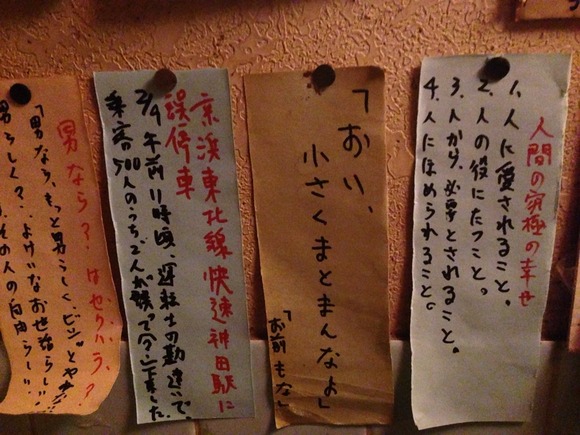 人間の究極の幸せ
1、人に愛されること。
2、人の役にたつこと。
3、人から、必要とされること。
4、人にほめられること。
「おい、
小さくまとまんなよ」
「お前もな」
京浜東北線快速神田駅に
誤停車
2/9 午前11時頃、運転士の勘違いで、
乗客500人のうち2人が
男なら？はセクハラ？
「男なら、もっと男らしく、ビシッと
男らしく？‥よけいなお世話らしい‥
その人の自由らしい